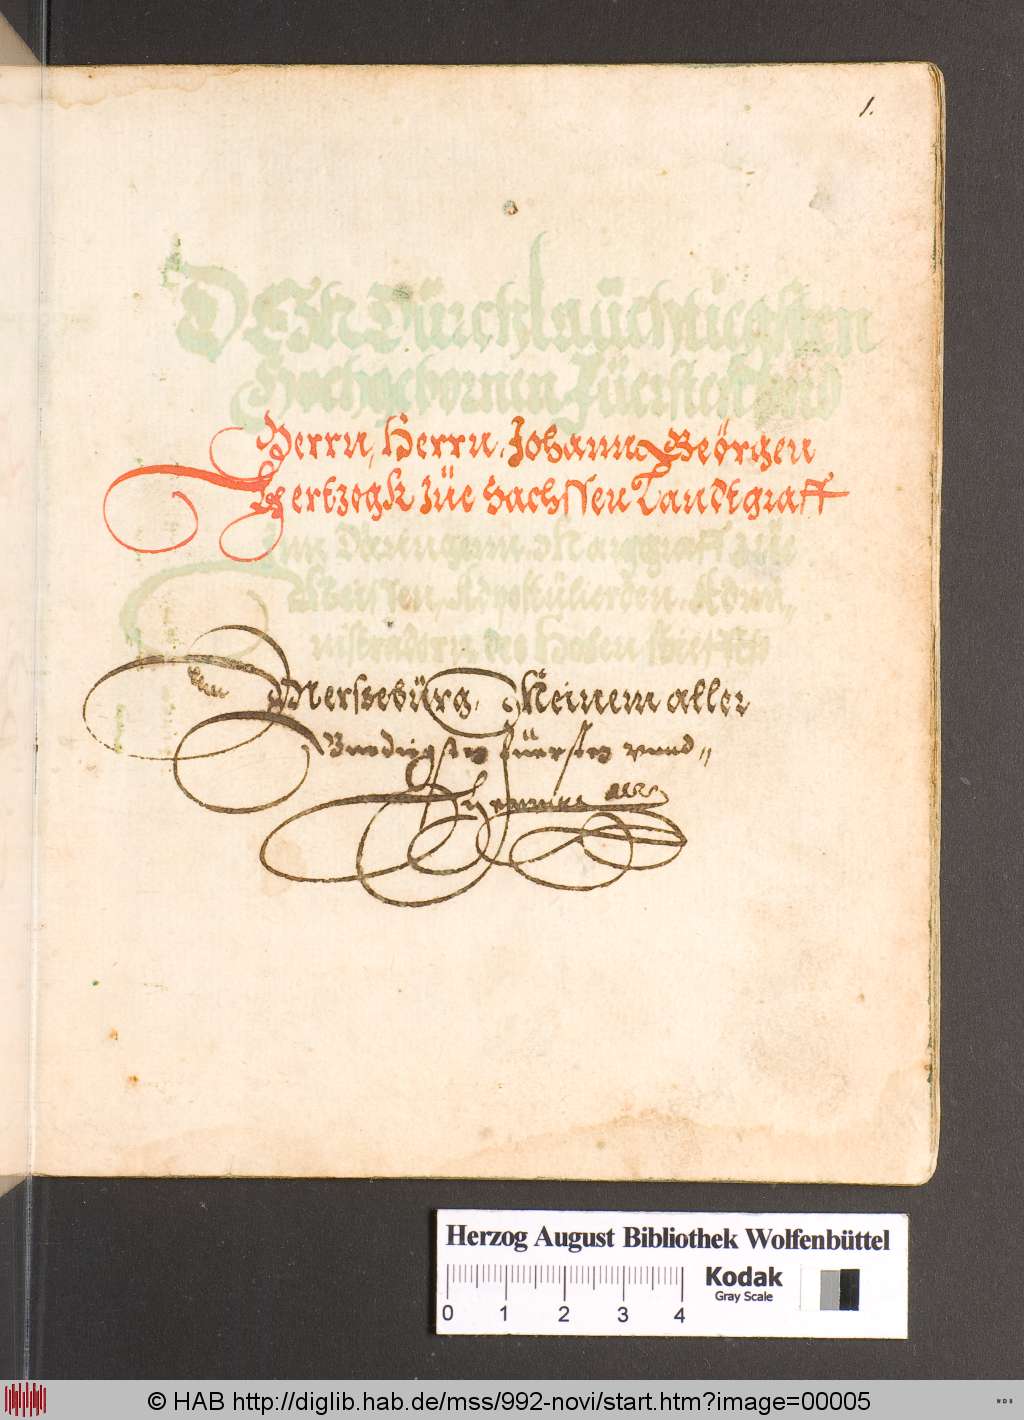 1.
DEN Dürchlaüchtiegsten
Hochgebornen Füersten vnd
Herrn, Herrn, Johann Geörgen
Hertzogk züe Sachssen Landtgraff
Inn Düringenn Marggraff züe
Meissen, Adpostülierden, Admi,,
nistradorn des Hohen stiefts
Merssebürg, Meinem aller
Gnedigsten Füersten vnnd,,
Herrnn
Herzog August Bibliothek Wolfenbüttel
Kodak
Gray Scale
0 1 2 3 4
© HAB http://diglib.hab.de/mss/992-novi/start.htm?image=00005